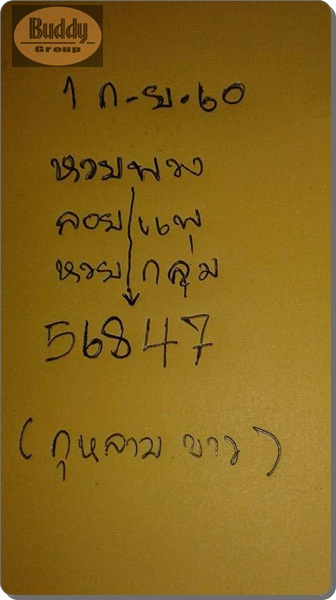 Buddy
Group
1 ก.ย.60
หวยพวง
ลอยแพ
หวยกลุ่ม
56847
(กุหลาบขาว)